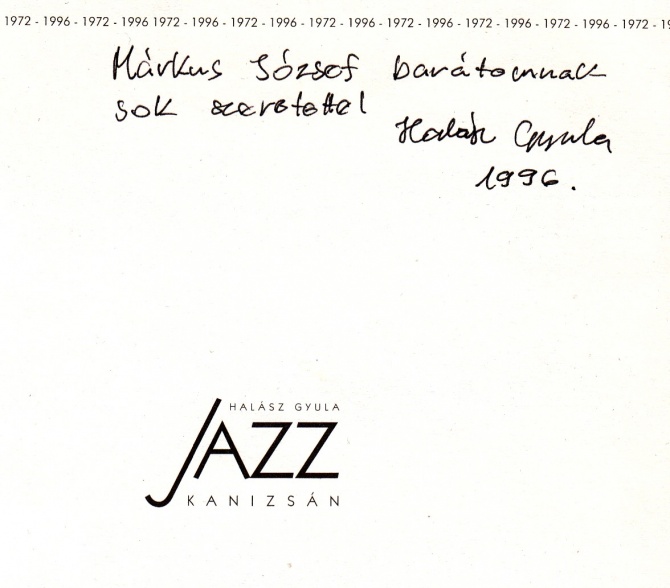 1972 - 1996 - 1972 - 1996 1972 - 1996 - 1972 - 1996 - 1972 - 1996 - 1972 - 1996 - 1972 - 1996 - 1972 - 1996 - 1972 - 19
Márkus József barátomnak
sok szeretettel
Halász Gyula
1996.
HALÁSZ GYULA
JAZZ
KANIZSÁN